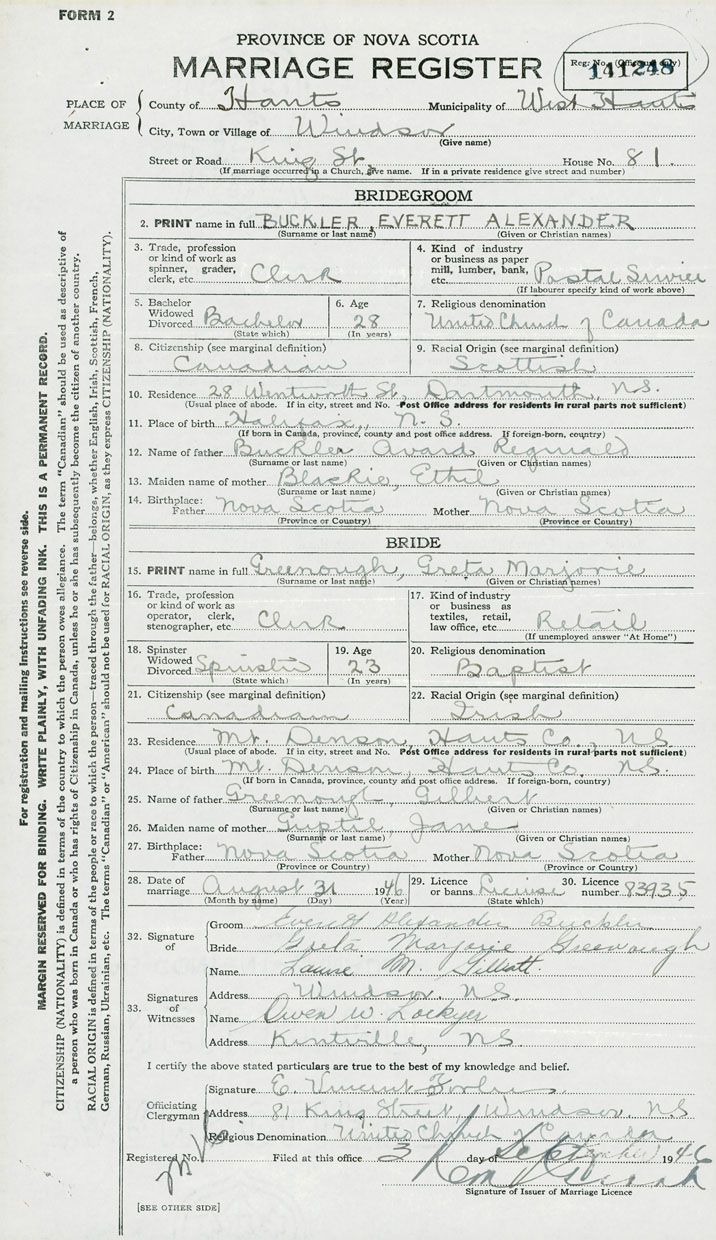 FORM 2
PROVINCE OF NOVA SCOTIA
MARRIAGE REGISTER
Reg. No. (Office use only)
141248
PLACE OF MARRIAGE
County of Hants Municipality of West Hants
City, Town or Village of Windsor
(Give name)
Street or Road King St. House No. 81.
(If marriage occurred in a Church, give name. If in a private residence give street and number)
BRIDEGROOM
2. PRINT name in full BUCKLER, EVERETT ALEXANDER
(Surname or last name) (Given or Christian names)
3. Trade, profession or kind of work as spinner, grader, clerk, etc. Clerk
4. Kind of industry or business as paper mill, lumber, bank, etc. Postal Service
(If labourer specify kind of work above)
5. Bachelor Widowed Divorced Bachelor
(State which)
6. Age 28
(In years)
7. Religious denomination
United Church of Canada
8. Citizenship (see marginal definition)
Canadian
9. Racial Origin (see marginal definition)
Scottish
10. Residence 28 Wentworth St., Dartmouth, N.S.
(Usual place of abode. If in city, street and No. Post Office address for residents in rural parts not sufficient)
11. Place of birth Halifax, N.S.
(If born in Canada, province, county and post office address. If foreign-born, country)
12. Name of father Buckler Avard Reginald
(Surname or last name) (Given or Christian names)
13. Maiden name of mother Blackie, Ethel
(Surname or last name) (Given or Christian names)
14. Birthplace: Father Nova Scotia Mother Nova Scotia
(Province or Country) (Province or Country)
BRIDE
15. PRINT name in full Greenough, Greta Marjorie
(Surname or last name) (Given or Christian names)
16. Trade, profession or kind of work as operator, clerk, stenographer, etc. Clerk
17. Kind of industry or business as textiles, retail, law office, etc. Retail
(If unemployed answer "At Home")
18. Spinster Widowed Divorced Spinster
(State which)
19. Age 23
(In years)
20. Religious denomination
Baptist
21. Citizenship (see marginal definition)
Canadian
22. Racial Origin (see marginal definition)
Irish
23. Residence Mt. Denson, Hants Co., N.S.
(Usual place of abode. If in city, street and No. Post Office address for residents in rural parts not sufficient)
24. Place of birth Mt. Denson, Hants Co. N.S.
(If born in Canada, province, county and post office address. If foreign-born, country)
25. Name of father Greenough, Gilbert
(Surname or last name) (Given or Christian names)
26. Maiden name of mother Guptil Jane
(Surname or last name) (Given or Christian names)
27. Birthplace: Father Nova Scotia Mother Nova Scotia
(Province or Country) (Province or Country)
28. Date of marriage August 31 1946
(Month by name) (Day) (Year)
29. Licence or banns License
(State which)
30. Licence number 83935
32. Signature of
Groom Everett Alexander Buckler
Bride Greta Marjorie Greenough
33. Signatures of Witnesses
Name Laurie M.
Address Windsor, N.S.
Name Owen W. Lockyer
Address Kentville, N.S.
I certify the above stated particulars are true to the best of my knowledge and belief.
Officiating Clergyman
Signature E. Vincent
Address 81 King Street, Windsor, N.S
Religious Denomination United Church of Canada
Registered No. Filed at this office 3 day of September 1946
Signature of Issuer of Marriage Licence
[SEE OTHER SIDE]
For registration and mailing instructions see reverse side.
MARGIN RESERVED FOR BINDING. WRITE PLAINLY, WITH UNFADING INK. THIS IS A PERMANENT RECORD.
CITIZENSHIP (NATIONALITY) is defined in terms of the country to which the person owes allegiance. The term "Canadian" should be used as descriptive of
a person who was born in Canada or who has rights of Citizenship in Canada, unless he or she has subsequently become the citizen of another country.
RACIAL ORIGIN is defined in terms of the people or race to which the person—traced through the father—belongs, whether English, Irish, Scottish, French,
German, Russian, Ukrainian, etc. The terms "Canadian" or "American" should not be used for RACIAL ORIGIN, as they express CITIZENSHIP (NATIONALITY).